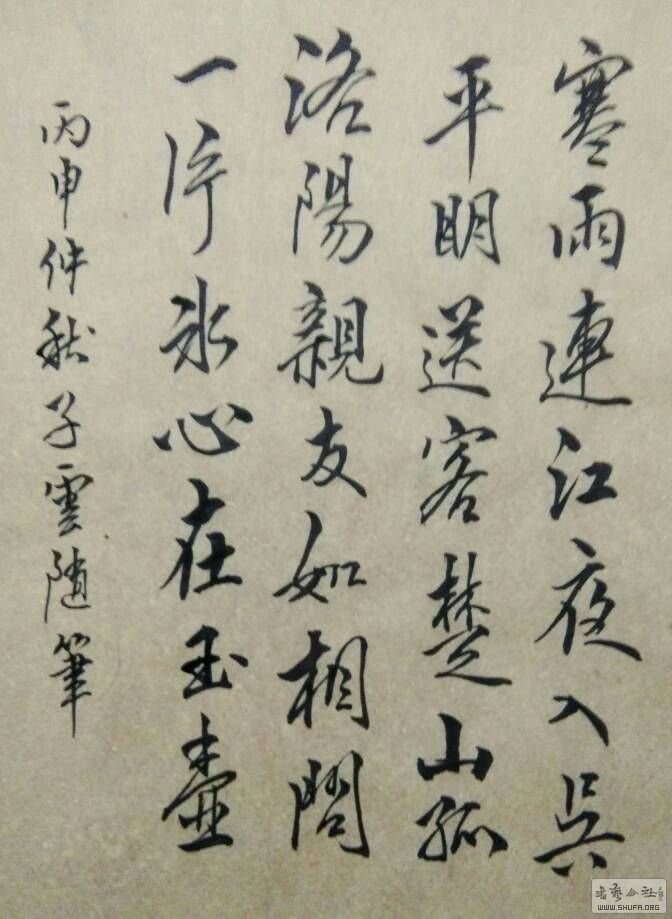 寒雨連江夜入吳
平明送客楚山孤
洛陽親友如相問
一片冰心在玉壺
丙申仲秋子雲隨筆
书艺公社
WWW.SHUFA.ORG